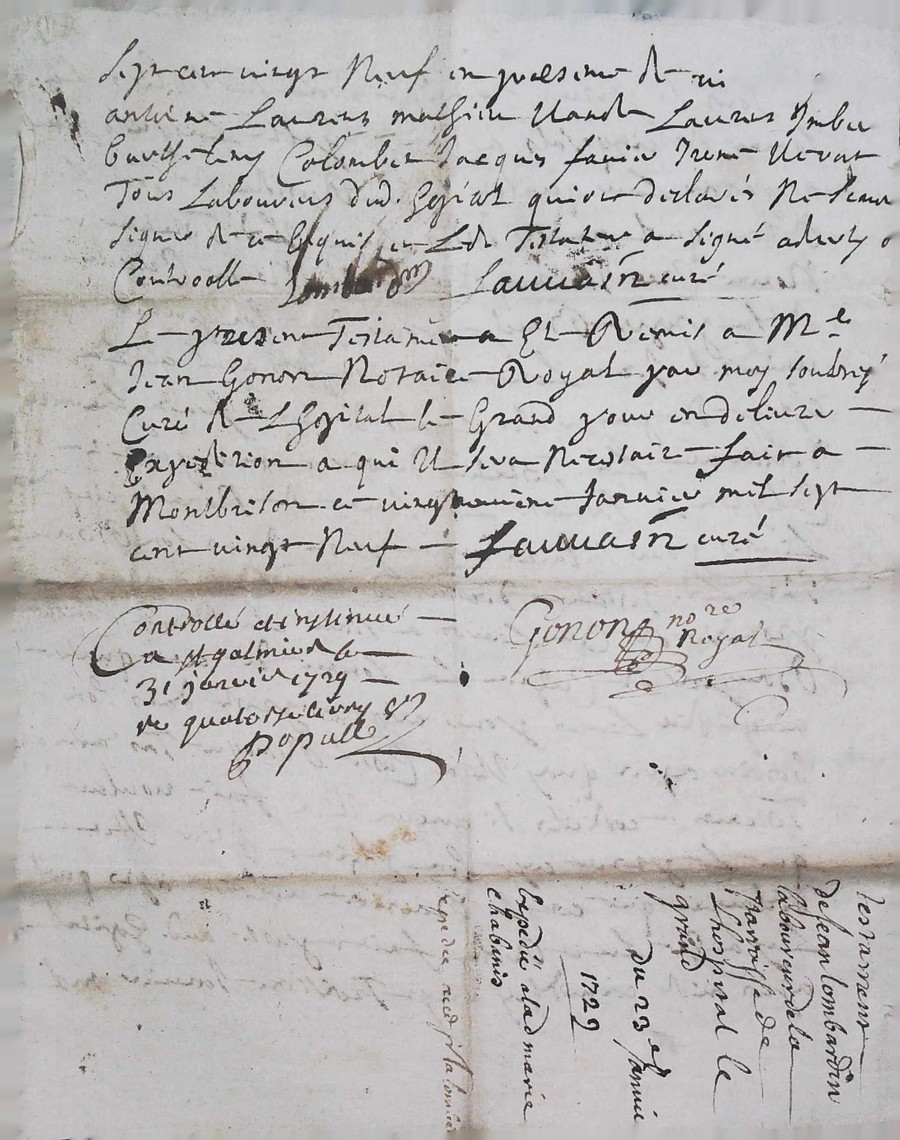 Sept cent vingt Neuf en presence de
antoine Laurens mathieu Laurens Imber
barthelemy Colombet Jacques favier
Tous Laboureurs dud. hopital qui ont declarés Ne Scavoir
Signer de ce Enquis et Led. Testateur a Signé advertis
Controolle Lombardin Jauvain curé
Le present Testament a Eté Remis a Me
Jean Gonon Notaire Royal par moy soubsné
Curé de L'hopital le Grand pour en delivrer
Expedition a qui Il sera Necessaire fait a
Montbrison ce vingt neuvieme Janvier mil sept
cent vingt Neuf Jauvain curé
Controllé et insinué
a St galmier le
31 janvier 1729
re quatorse livres
Populle
Gonon nore
Royal
Testament
de Jean lombardin
laboureur de la
Parroisse de
Lhospital le
grand
du 23e Janvier
1729
Expedié a lad marie
chabanis